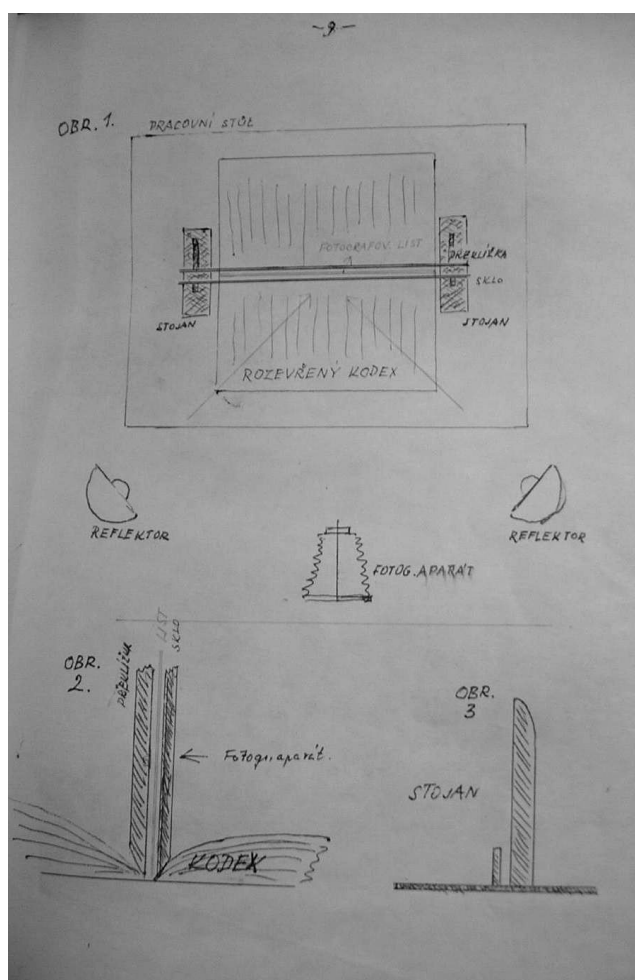 -9-
OBR. 1.
PRACOVNÍ STŮL
FOTOGRAFOV. LIST
PŘEKLIŽKA
SKLO
STOJAN
STOJAN
ROZEVŘENÝ KODEX
REFLEKTOR
REFLEKTOR
FOTOG. APARÁT
OBR.
2.
PŘEKLIŽKA
LIST
SKLO
Fotogr. aparát.
KODEX
OBR.
3
STOJAN